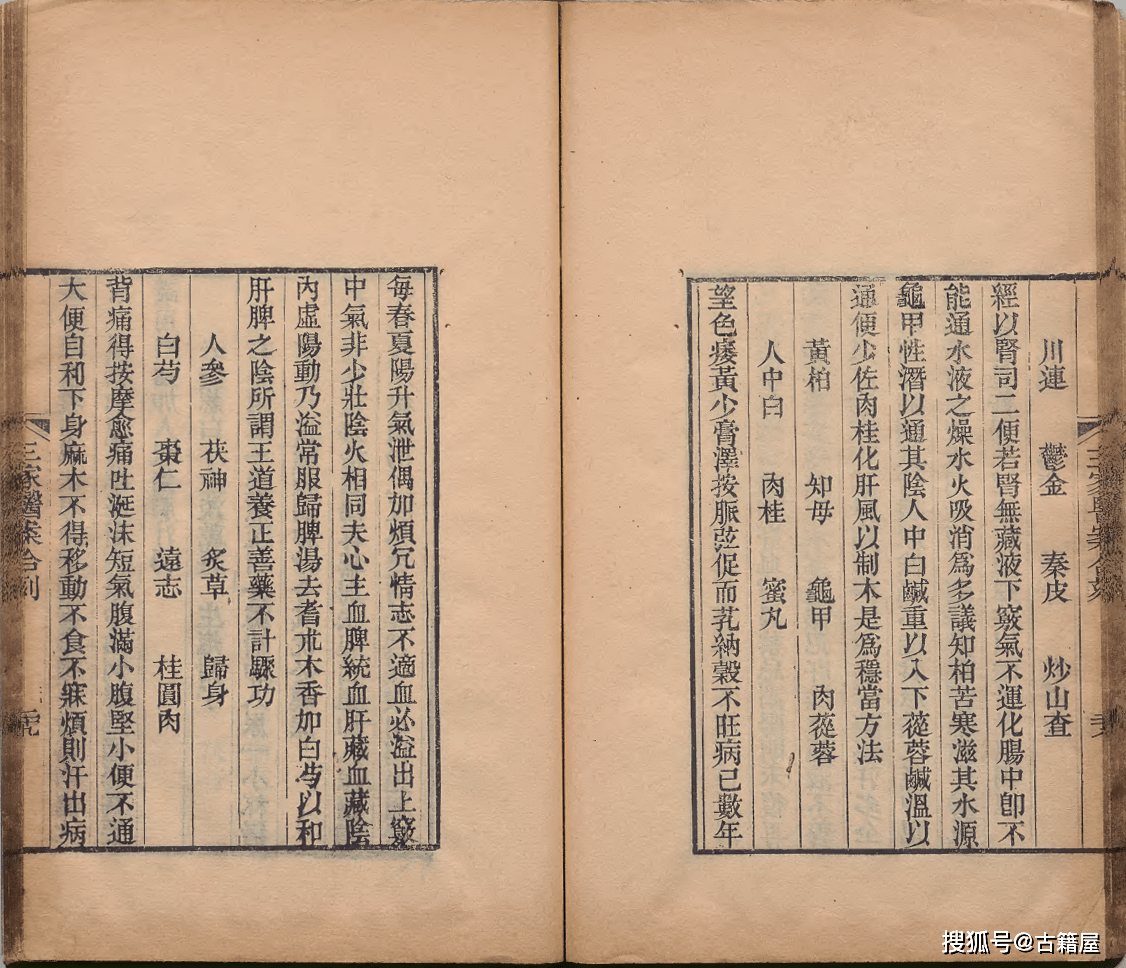 川連 鬱金 秦皮 炒山查
經以腎司二便若腎無藏液下竅氣不運化腸中卽不
能通水液之燥水火吸消爲多議知柏苦寒滋其水源
龜甲性潛以通其陰人中白鹹重以入下蓯蓉鹹溫以
通便少佐肉桂化肝風以制木是爲穩當方法
黃柏 知母 龜甲 肉蓯蓉
人中白 肉桂 蜜丸
望色痿黃少膏澤按脈弦促而芤納穀不旺病已數年
每春夏陽升氣泄偶加煩冗情志不適血必溢出上竅
中氣非少壯陰火相同夫心主血脾統血肝藏血藏陰
內虛陽動乃溢常服歸脾湯去耆朮木香加白芍以和
肝脾之陰所謂王道養正善藥不計驟功
人參 茯神 炙草 歸身
白芍 棗仁 遠志 桂圓肉
背痛得按摩愈痛吐涎沫短氣腹滿小腹堅小便不通
大便自利下身麻木不得移動不食不寐煩則汗出病
三家醫案合刻
搜狐号@古籍屋